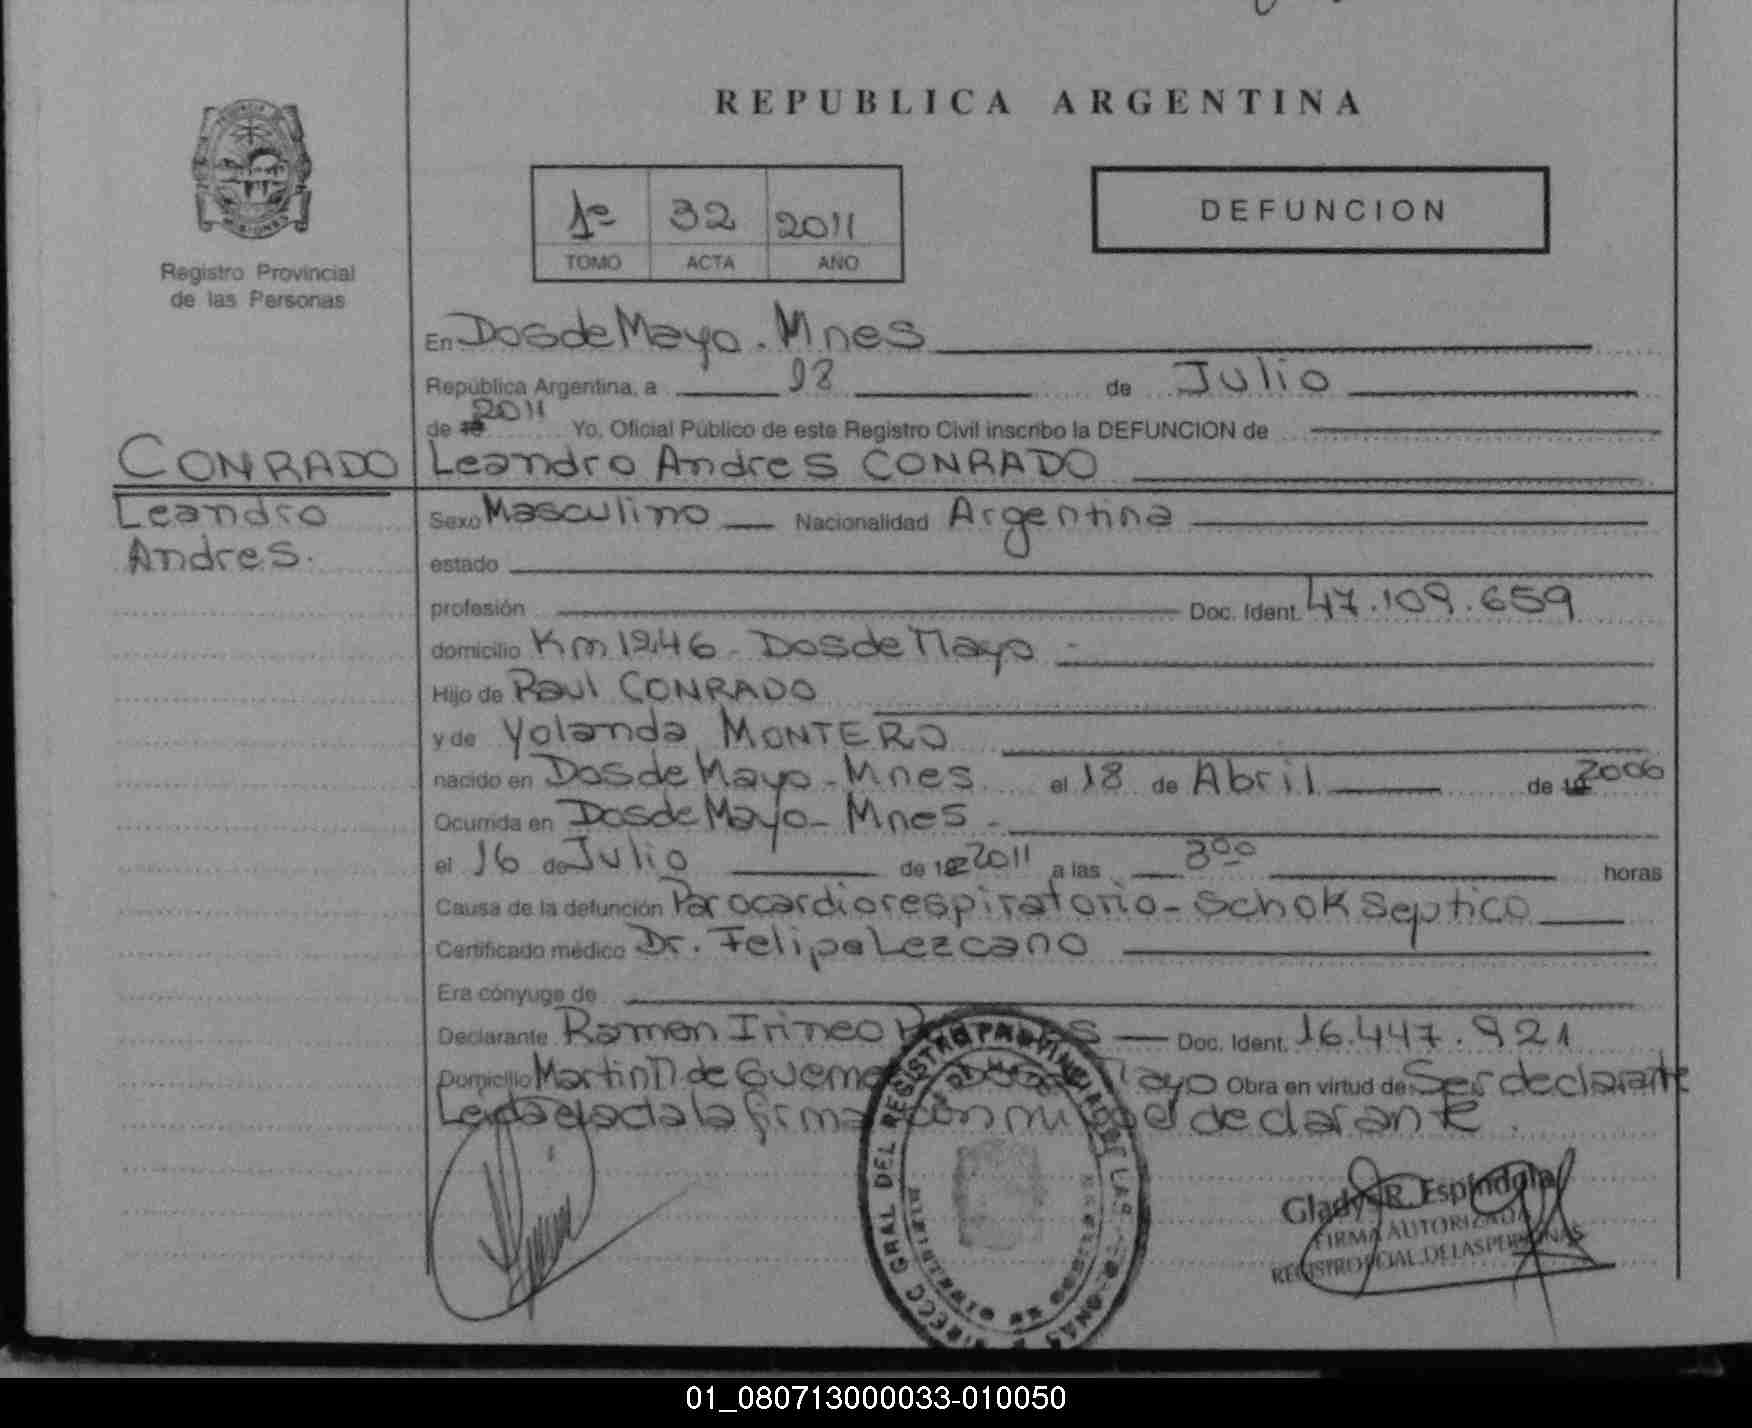 REPUBLICA ARGENTINA
1º 32 2011
TOMO ACTA AÑO
DEFUNCION
Registro Provincial
de las Personas
En Dos de Mayo. Mnes
República Argentina, a 18 de Julio
de 19 2011 Yo, Oficial Público de este Registro Civil inscribo la DEFUNCION de
CONRADO
Leandro
Andres.
Leandro Andres CONRADO
Sexo Masculino Nacionalidad Argentina
estado
profesión Doc. Ident. 47.109.659
domicilio Km 1246 - Dos de Mayo -
Hijo de Raul CONRADO
y de Yolanda MONTERO
nacido en Dos de Mayo - Mnes el 18 de Abril de 19 2006
Ocurrida en Dos de Mayo - Mnes -
el 16 de Julio de 19 2011 a las 3⁰⁰ horas
Causa de la defunción Parocardiorespiratorio - Schok Septico
Certificado médico Dr. Felipe Lezcano
Era cónyuge de
Declarante Ramon Irineo Doc. Ident. 16.447.921
Domicilio Martin M de Mayo Obra en virtud de Ser declarante
Leida el acta la firma con mi el declarante.
DIRECC GRAL DEL REGISTRO PROVINCIAL DE LAS
Gladys R. Espindola
FIRMA AUTORIZADA
REGISTRO PCIAL. DE LAS PERSONAS
01_080713000033-010050